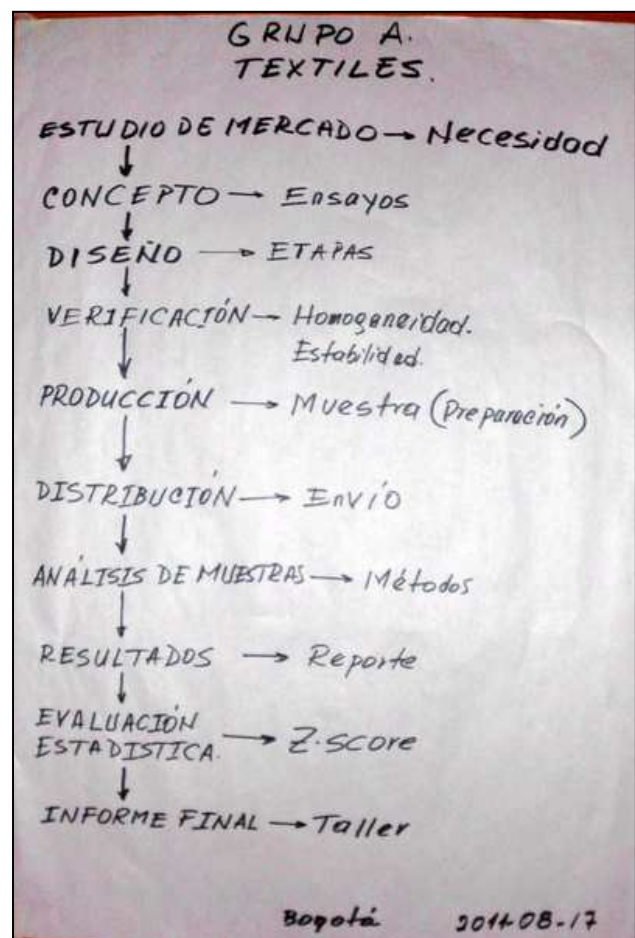 GRUPO A.
TEXTILES.
ESTUDIO DE MERCADO → Necesidad
CONCEPTO → Ensayos
DISEÑO → ETAPAS
VERIFICACIÓN → Homogeneidad.
Estabilidad.
PRODUCCIÓN → Muestra (Preparación)
DISTRIBUCIÓN → Envío
ANÁLISIS DE MUESTRAS → Métodos
RESULTADOS → Reporte
EVALUACIÓN
ESTADISTICA. → Z-score
INFORME FINAL → Taller
Bogotá 2011-08-17